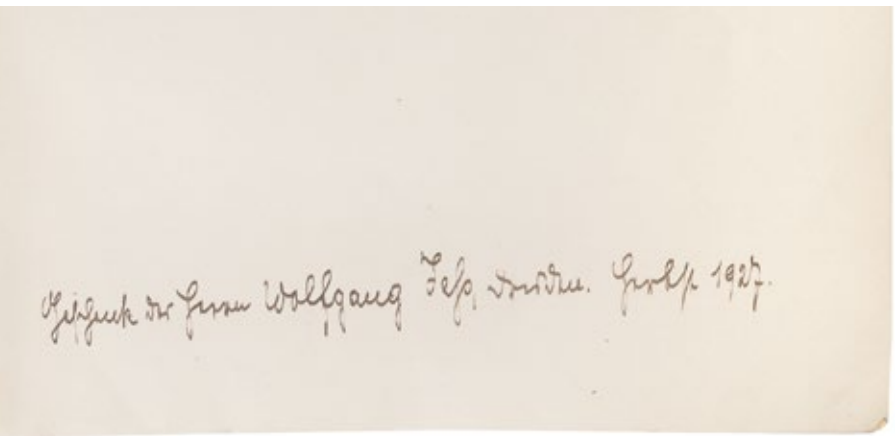 Geschenk des Herrn Wolfgang Dresden. Herbst 1927.